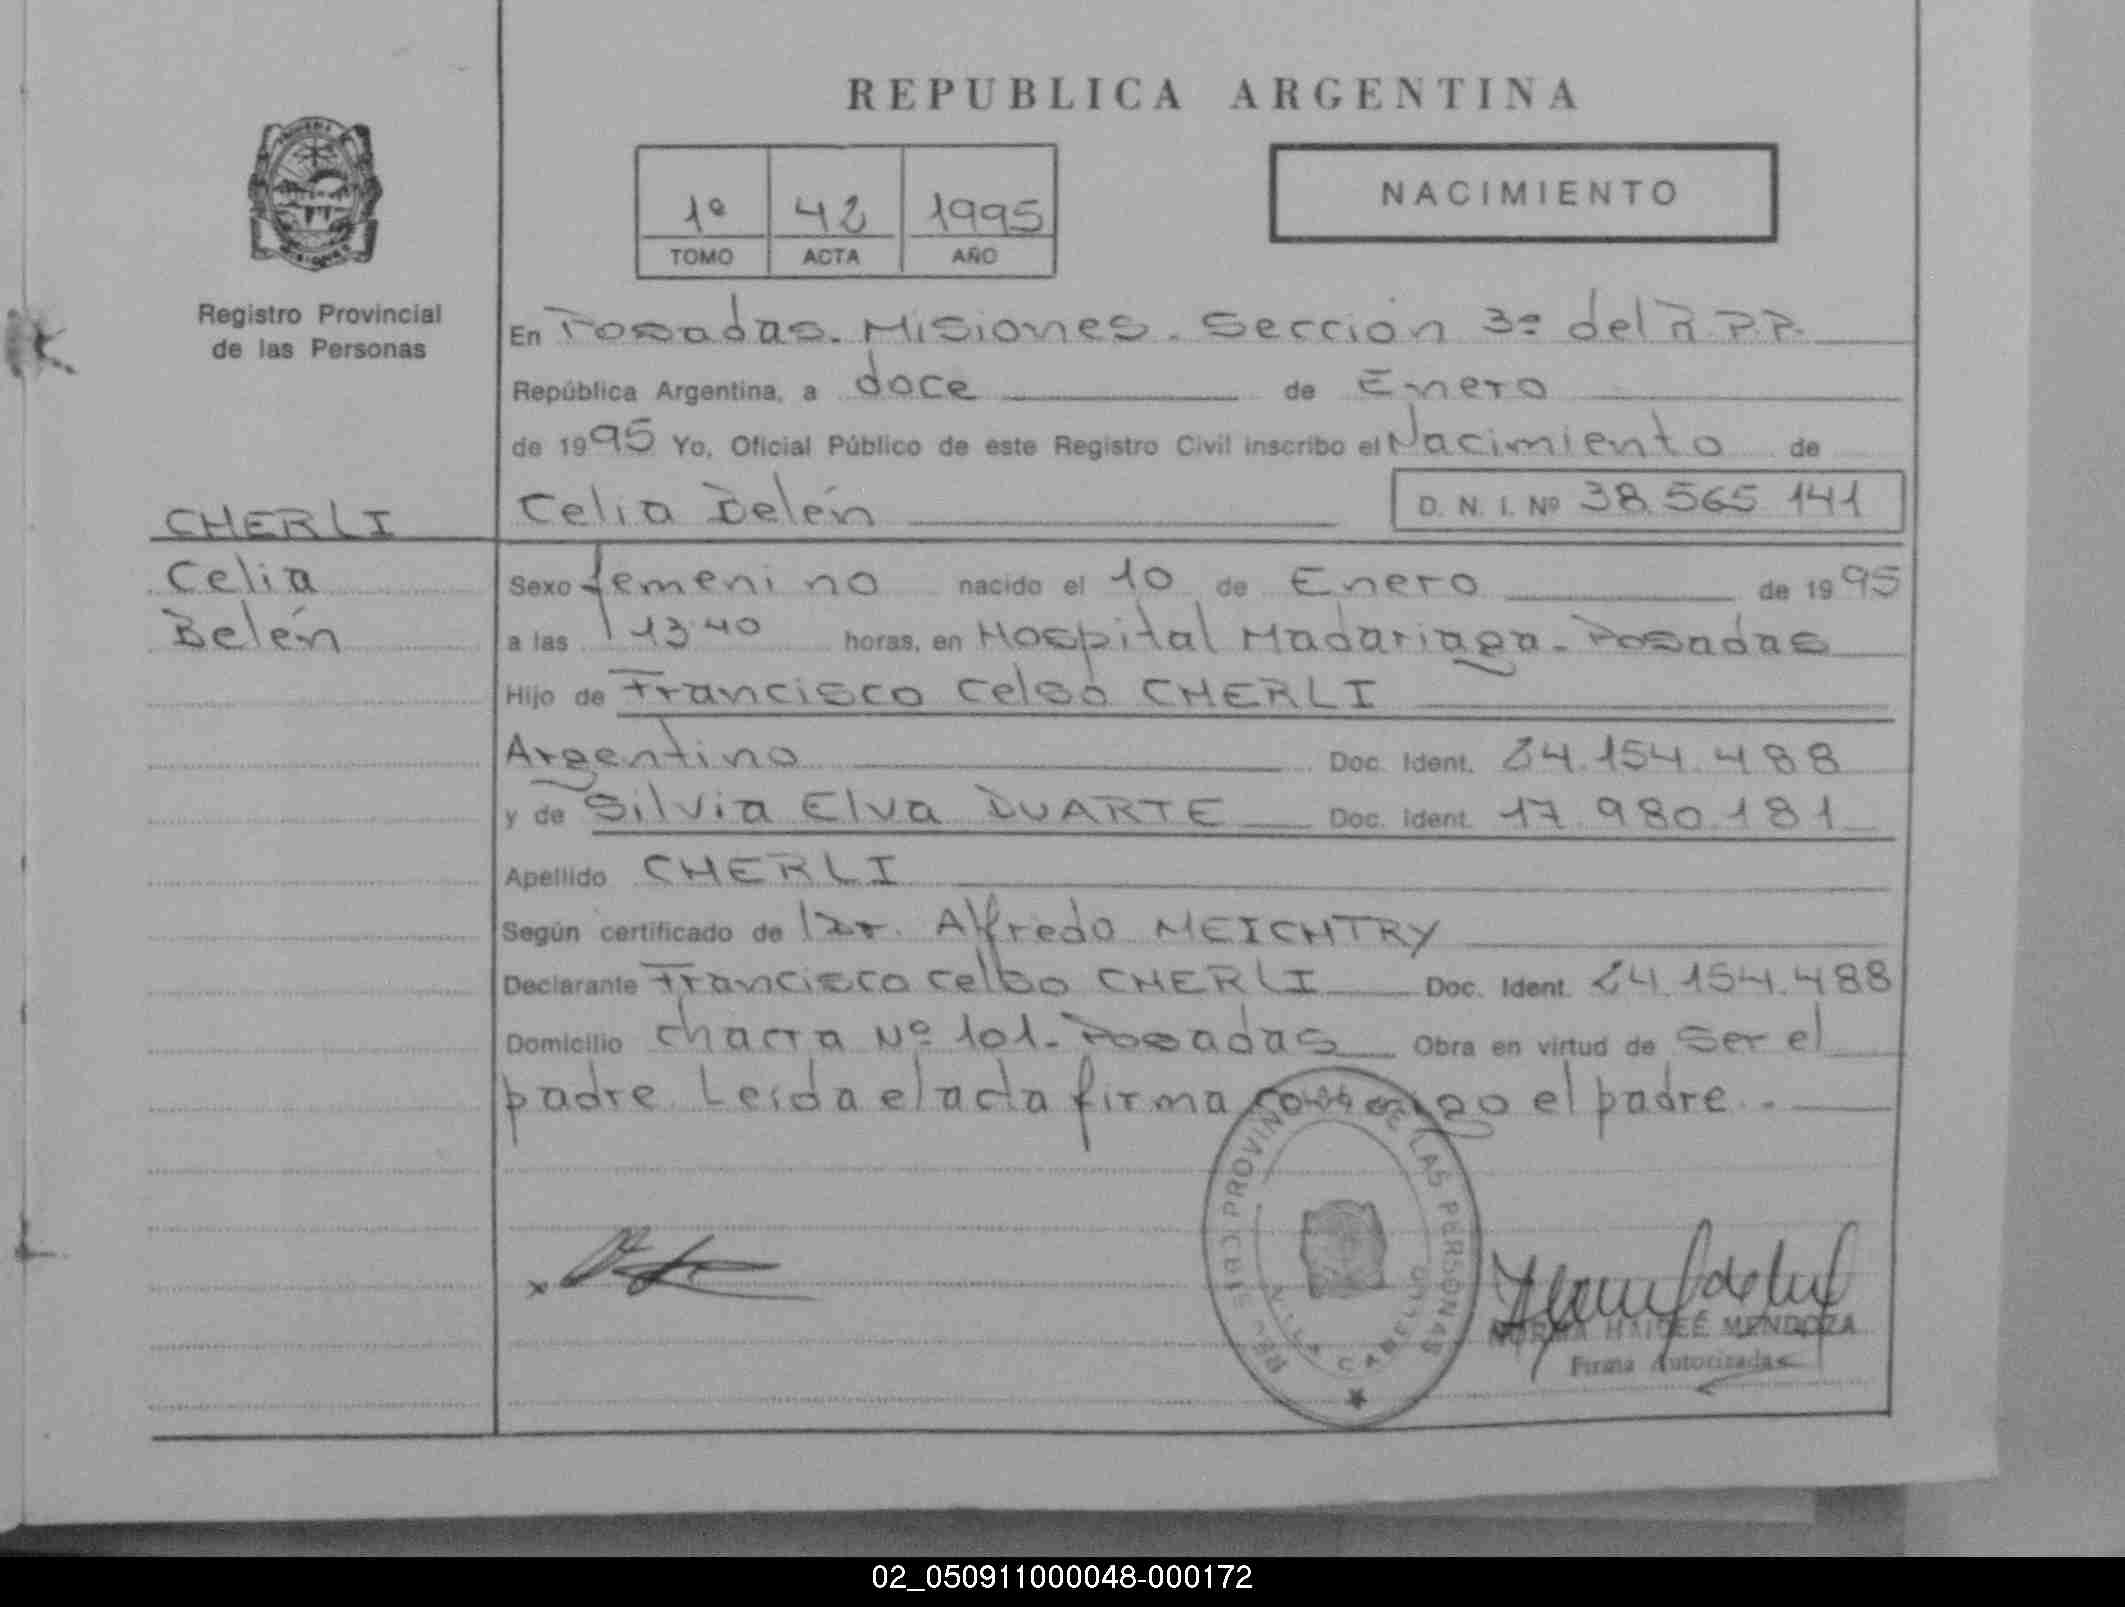 REPUBLICA ARGENTINA
1º 42 1995
TOMO ACTA AÑO
NACIMIENTO
Registro Provincial
de las Personas
CHERLI
Celia
Belén
En Posadas. Misiones. Sección 3ª del R.P.P.
República Argentina, a doce de Enero
de 1995 Yo, Oficial Público de este Registro Civil inscribo el Nacimiento de
Celia Belén D. N. I. Nº 38.565.141
Sexo femenino nacido el 10 de Enero de 1995
a las 13:40 horas, en Hospital Madariaga - Posadas
Hijo de Francisco Celso CHERLI
Argentino Doc. Ident. 24.154.488
y de Silvia Elva DUARTE Doc. Ident. 17.980.181
Apellido CHERLI
Según certificado de Dr. Alfredo MEICHTRY
Declarante Francisco Celso CHERLI Doc. Ident. 24.154.488
Domicilio Chacra Nº 101 - Posadas Obra en virtud de ser el
padre. Leida el acta firma conmigo el padre. -
x
NORMA HAIDEÉ MENDOZA
Firma Autorizada
02_050911000048-000172